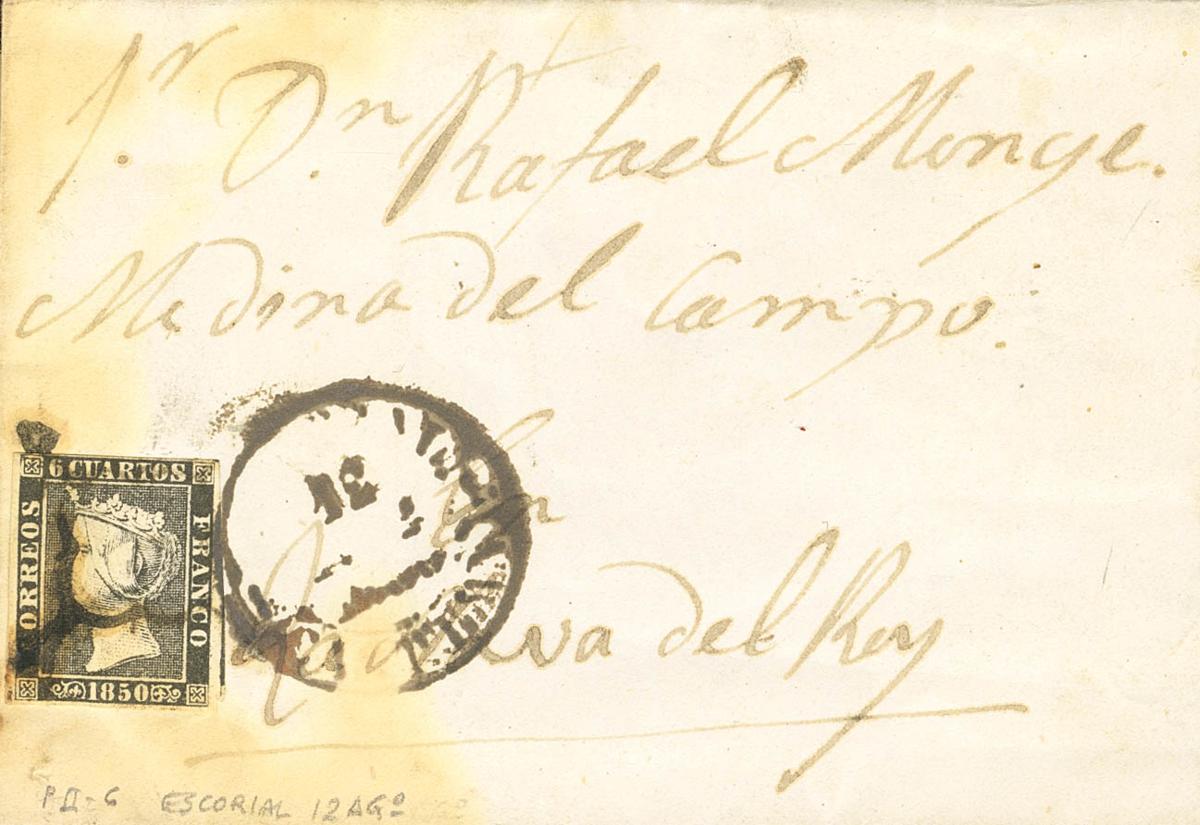 Sr. Dn. Rafael Monge.
Medina del Campo.
En
la Nava del Rey
6 CUARTOS
CORREOS
FRANCO
1850
12
PII-6 ESCORIAL 12 AGº